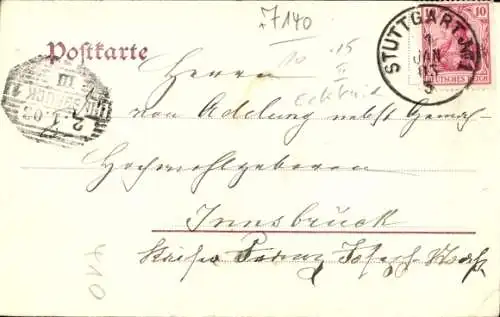 7140
Postkarte
STUTTGART
1
JAN
3
10
DEUTSCHES REICH
10 15
II
Herrn
von Adelung nebst Gemah-
Hochwohlgeboren
Innsbruck
Kaiser Franz Josef
INNSBRUCK 1
2.1.03
III
410